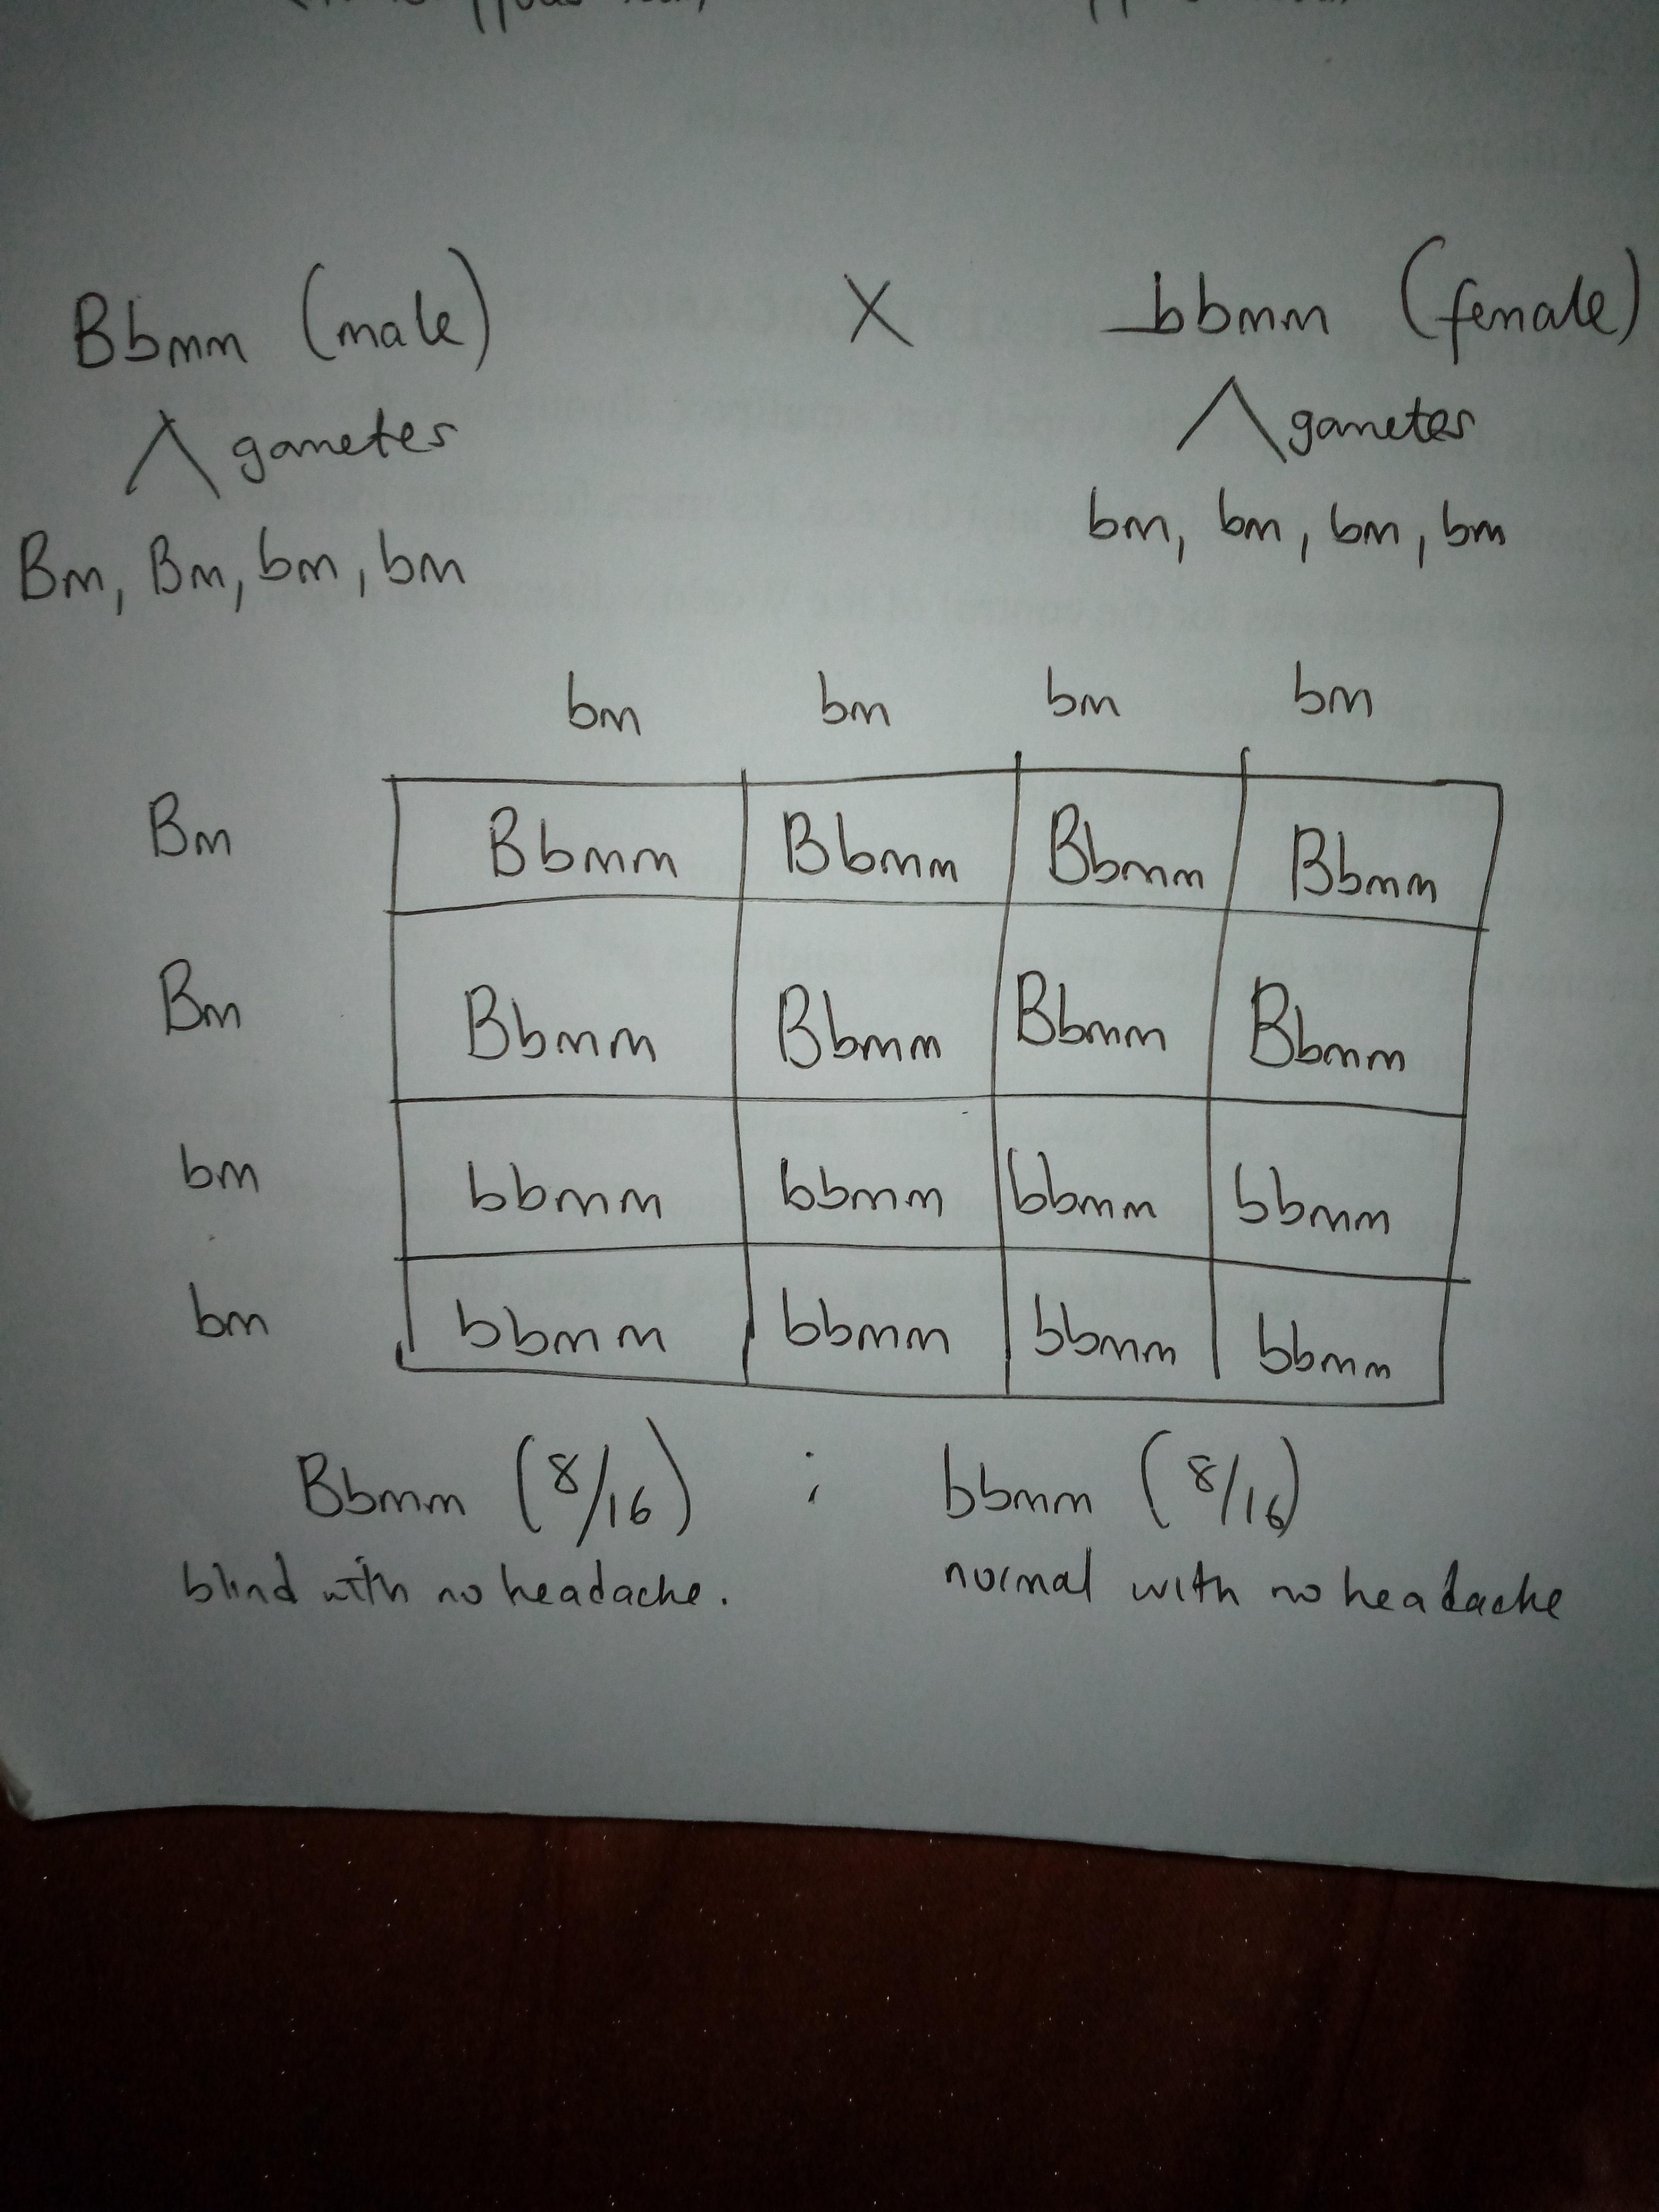 Bbmm (male) X bbmm (female)
gametes gametes
Bm, Bm, bm, bm bm, bm, bm, bm
bm bm bm bm
Bm Bbmm Bbmm Bbmm Bbmm
Bm Bbmm Bbmm Bbmm Bbmm
bm bbmm bbmm bbmm bbmm
bm bbmm bbmm bbmm bbmm
Bbmm (8/16) ; bbmm (8/16)
blind with no headache. normal with no headache